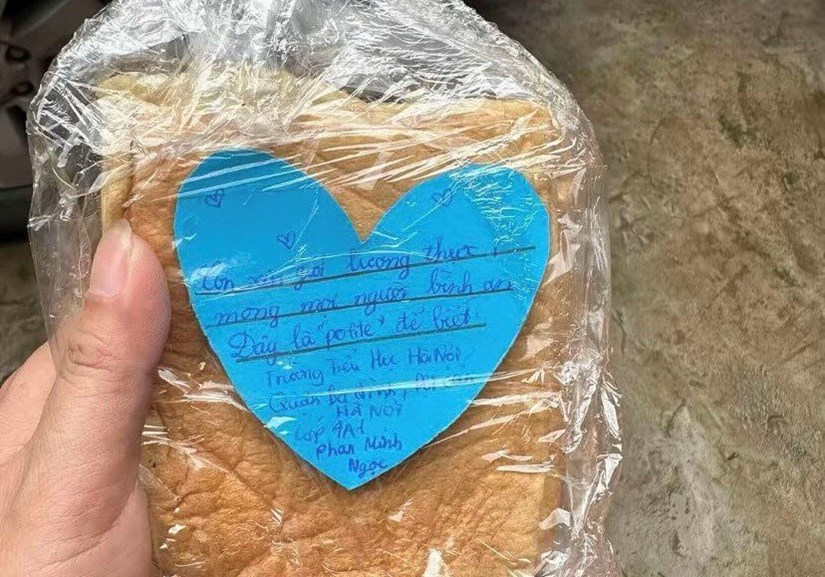 Con xin gửi lương thực,
mong mọi người bình an
Đây là "polite" để biết
Trường Tiểu Học Hà Nội
Quận Ba Đình,
HÀ NỘI
Lớp 4A1
Phan Minh
Ngọc